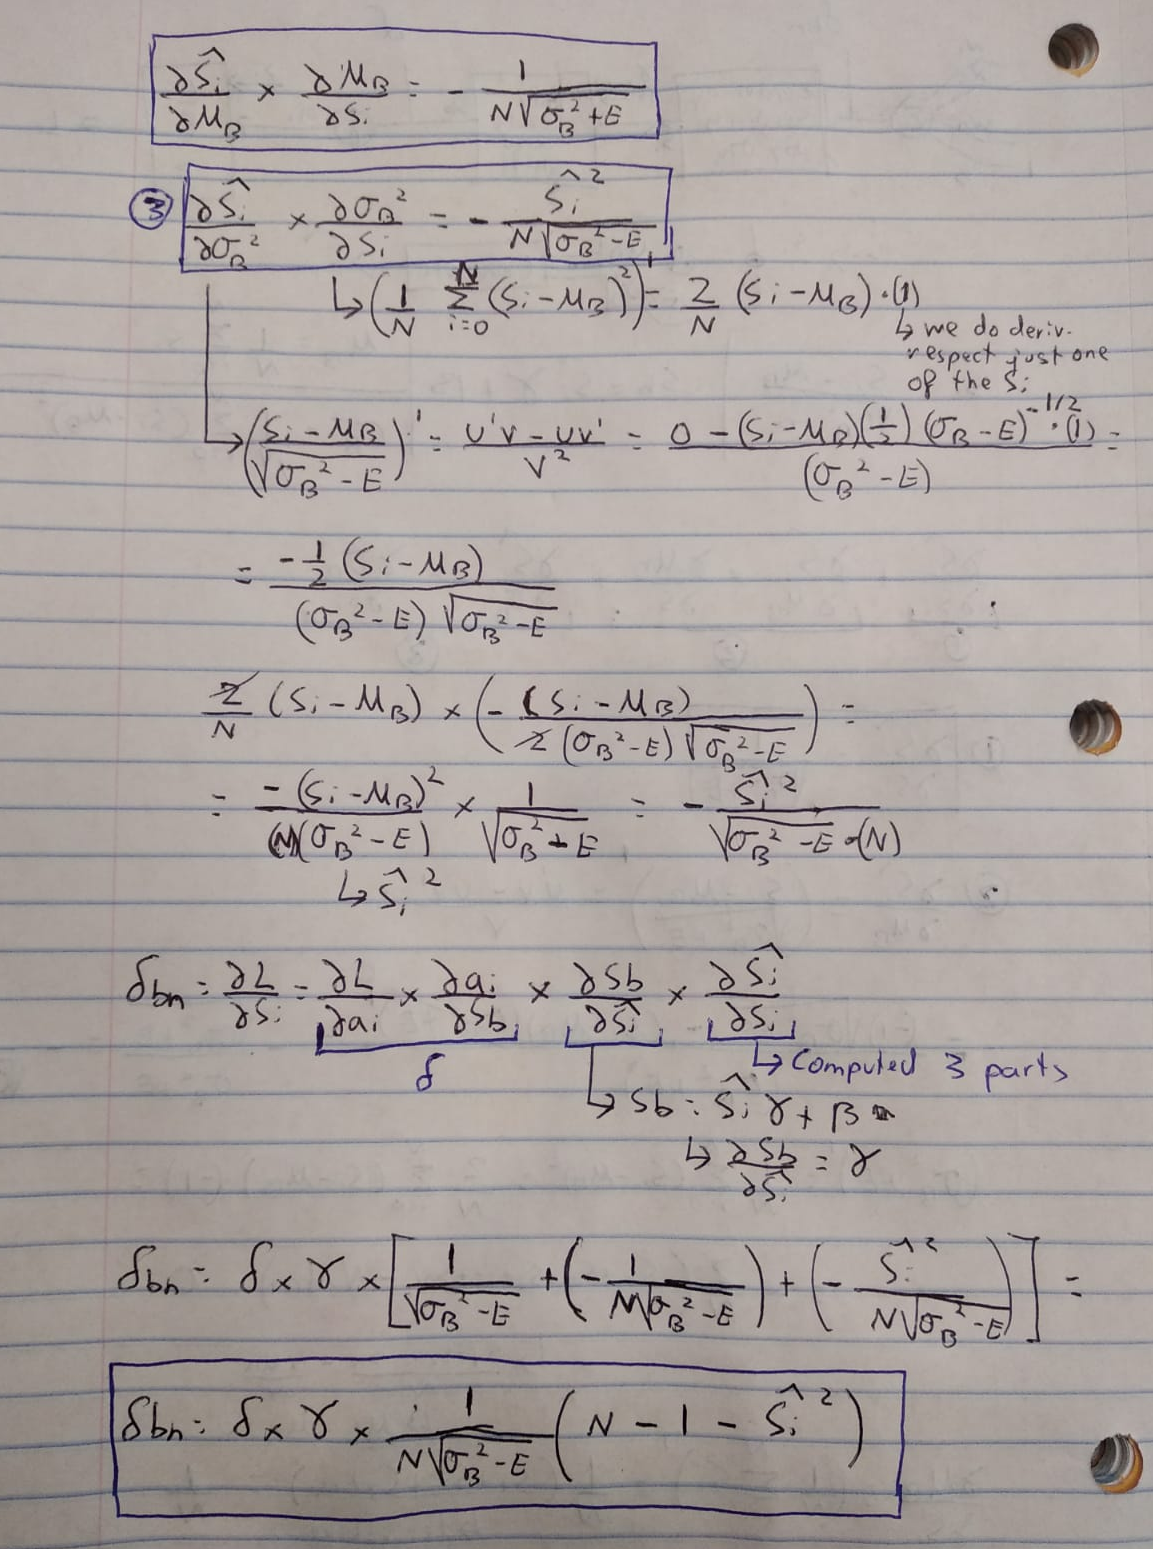 ∂Ŝi/∂μB × ∂μB/∂Si = - 1/(N√(σB²+E))
③ ∂Ŝi/∂σB² × ∂σB²/∂Si = - Ŝi²/(N√(σB²-E))
↳ (1/N Σ_{i=0}^{N} (Si-μB)²)' = 2/N (Si-μB)·(1)
↳ we do deriv.
respect just one
of the Si
↳ ((Si-μB)/√(σB²-E))' = (U'V-UV')/V² = (0-(Si-μB)(1/2)(σB-E)^(-1/2)·(1))/(σB²-E) =
= (-1/2 (Si-μB))/((σB²-E) √(σB²-E))
2/N (Si-μB) × (- (Si-μB)/(2(σB²-E) √(σB²-E))) =
= (-(Si-μB)²)/(N(σB²-E)) × 1/√(σB²+E) = - Ŝi²/(√(σB²-E)·(N))
↳ Ŝi²
δbn = ∂L/∂Si = ∂L/∂ai × ∂ai/∂Sb × ∂Sb/∂Ŝi × ∂Ŝi/∂Si
δ
↳ Computed 3 parts
↳ Sb = Ŝi γ + β
↳ ∂Sb/∂Ŝi = γ
δbn = δ × γ × [1/√(σB²-E) + (- 1/(N√(σB²-E))) + (- Ŝi²/(N√(σB²-E)))] =
δbn = δ × γ × 1/(N√(σB²-E)) (N - 1 - Ŝi²)